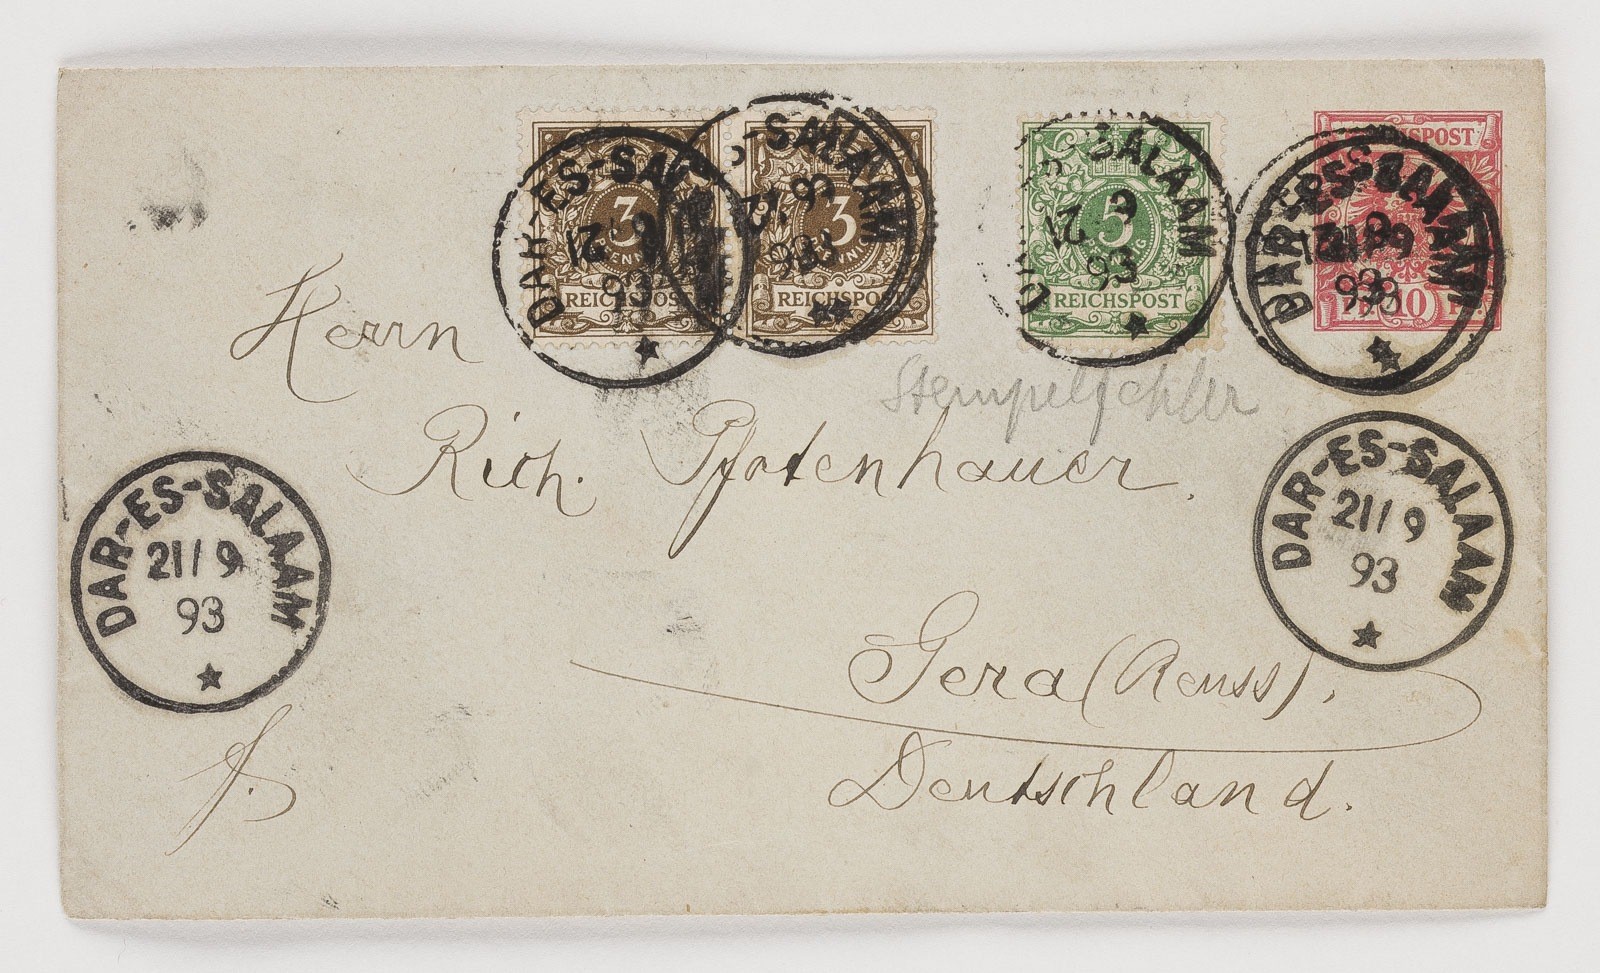 DAR-ES-SA
21 9
93
3
PFENNIG
REICHSPOST
-SALAAM
21 9
93
3
PFENNIG
REICHSPOST
SALAAM
21
93
5
REICHSPOST
REICHSPOST
DAR-ES-SALAAM
93
10
Herrn
Stempelfehler
Rich. Pfotenhauer.
DAR-ES-SALAAM
21/9
93
DAR-ES-SALAAM
21/9
93
Gera (Reuss).
Deutschland.